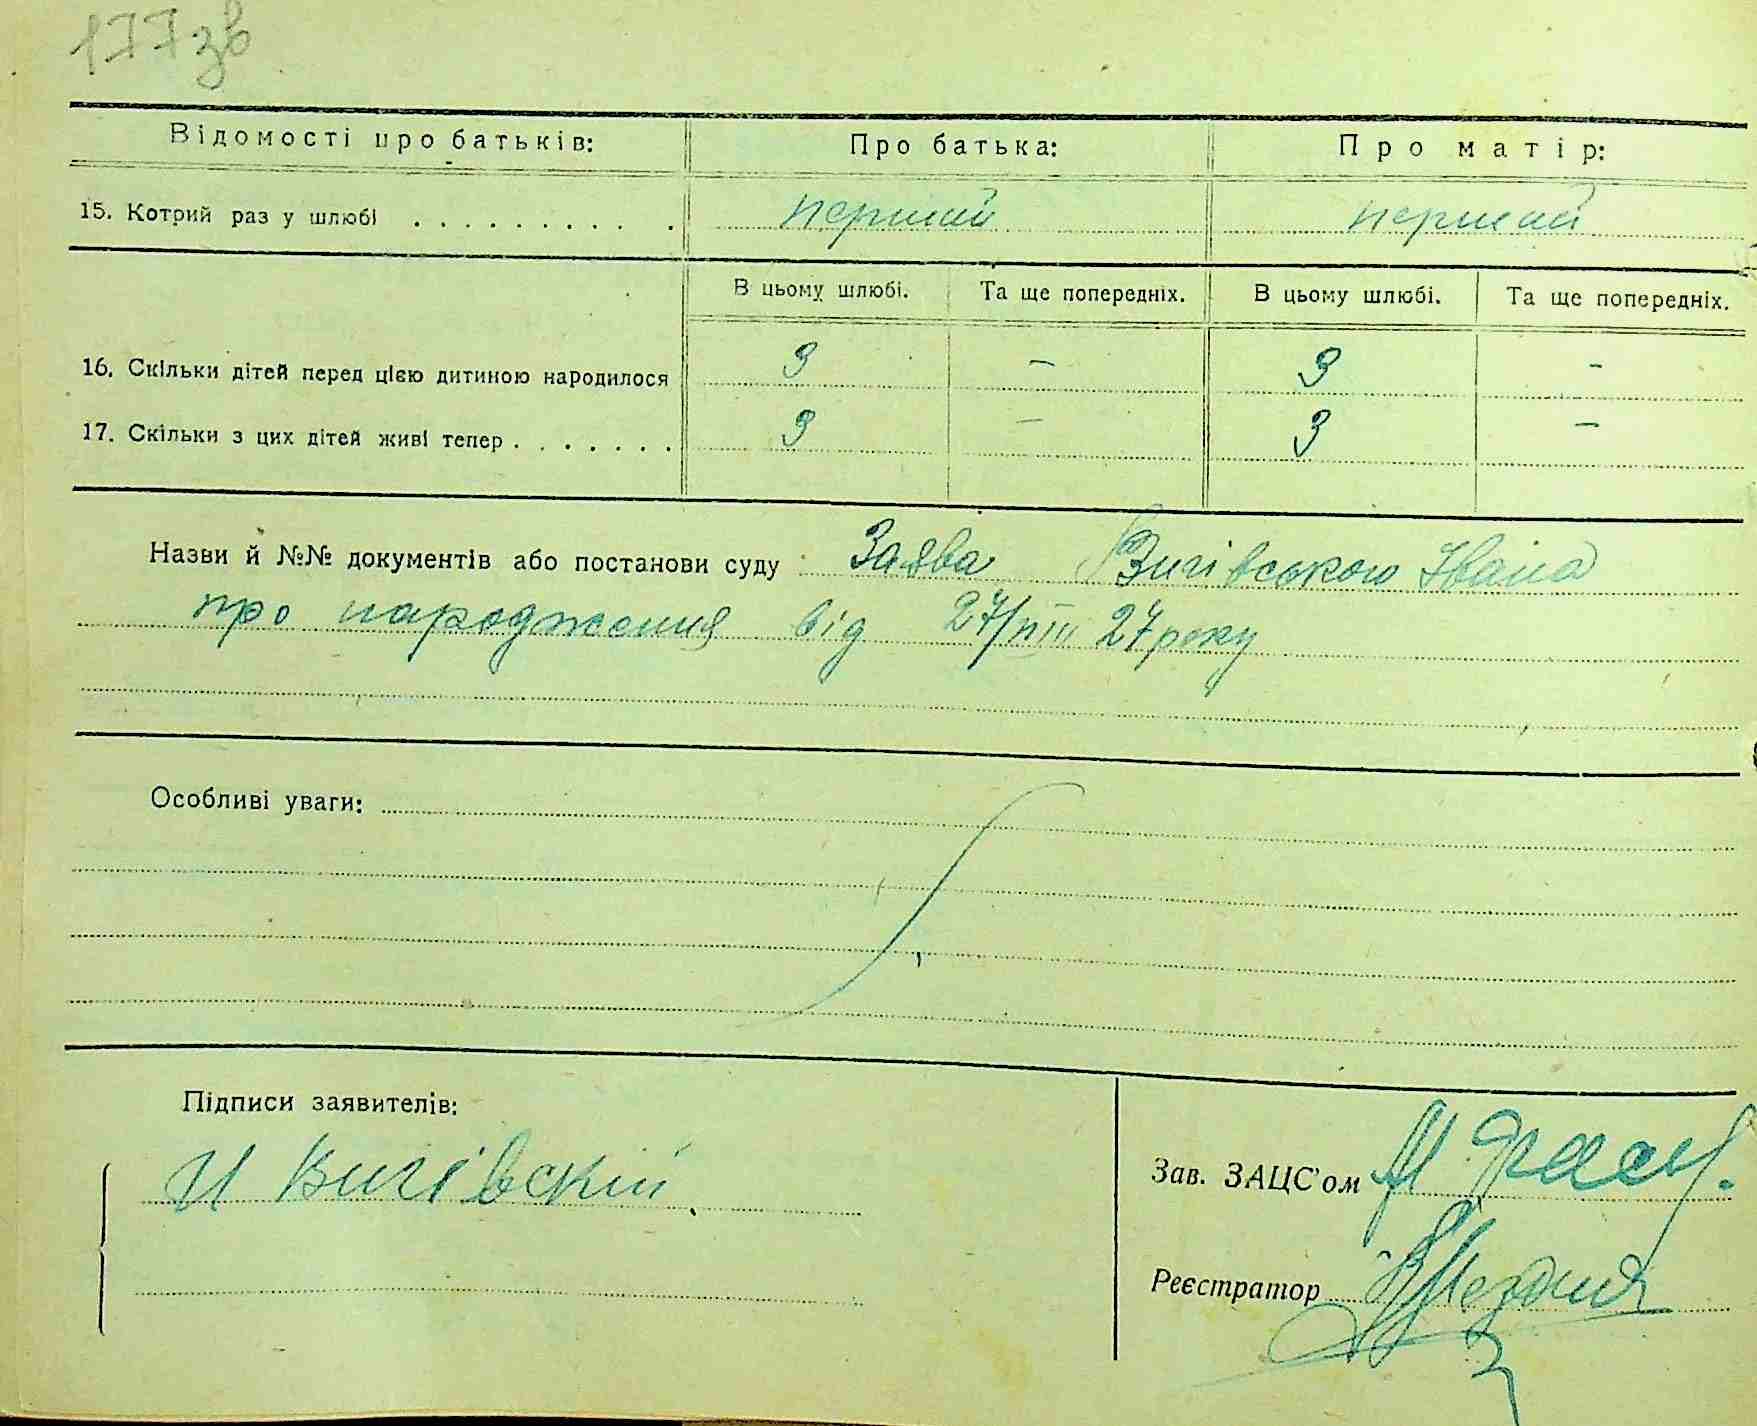 177зв
Відомості про батьків: Про батька: Про матір:
15. Котрий раз у шлюбі . . . . . . . . . . перший перший
В цьому шлюбі. Та ще попередніх. В цьому шлюбі. Та ще попередніх.
16. Скільки дітей перед цією дитиною народилося 3 – 3 –
17. Скільки з цих дітей живі тепер . . . . . . . 3 – 3 –
Назви й №№ документів або постанови суду Заява Вигівського Івана
про народження від 27/VIII 27 року
Особливі уваги:
Підписи заявителів:
И Вигівский
Зав. ЗАЦС'ом
Реєстратор